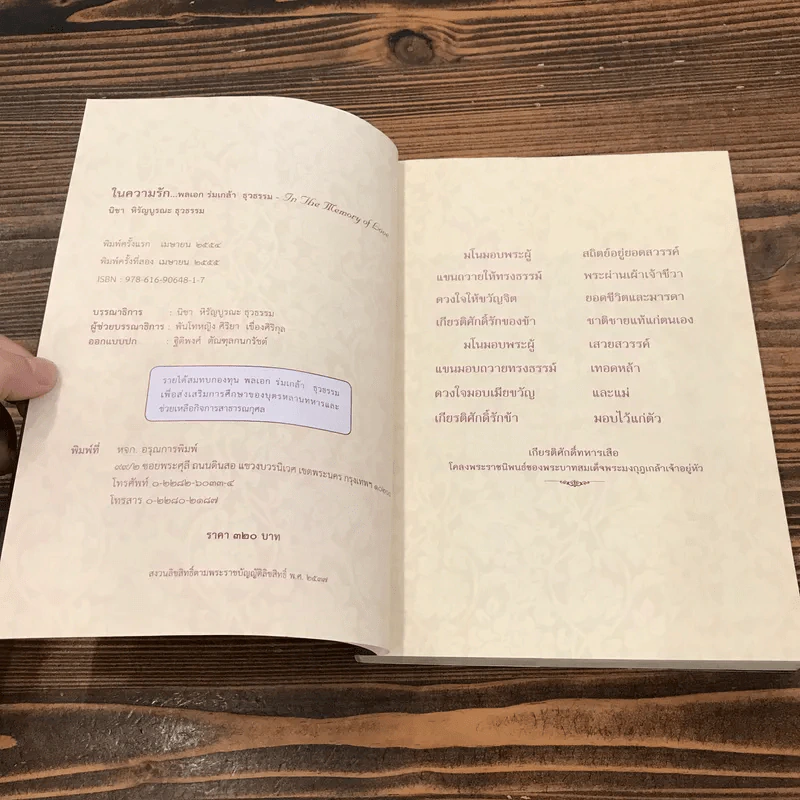 ในความรัก...พลเอก ร่มเกล้า ธุวธรรม - In The Memory of Love
นิชา หิรัญบูรณะ ธุวธรรม
พิมพ์ครั้งแรก เมษายน ๒๕๕๔
พิมพ์ครั้งที่สอง เมษายน ๒๕๕๕
ISBN : 978-616-90648-1-7
บรรณาธิการ : นิชา หิรัญบูรณะ ธุวธรรม
ผู้ช่วยบรรณาธิการ : พันโทหญิง ศิริยา เขื่องศิริกุล
ออกแบบปก : ฐิติพงศ์ ตัณฑุลกนกรัชต์
รายได้สมทบกองทุน พลเอก ร่มเกล้า ธุวธรรม
เพื่อส่งเสริมการศึกษาของบุตรหลานทหารและ
ช่วยเหลือกิจการสาธารณกุศล
พิมพ์ที่ หจก. อรุณการพิมพ์
๙๙/๒ ซอยพระศุลี ถนนดินสอ แขวงบวรนิเวศ เขตพระนคร กรุงเทพฯ ๑๐๒๐๐
โทรศัพท์ ๐-๒๒๘๒-๖๐๓๓-๔
โทรสาร ๐-๒๒๘๐-๒๑๘๗
ราคา ๓๒๐ บาท
สงวนลิขสิทธิ์ตามพระราชบัญญัติลิขสิทธิ์ พ.ศ. ๒๕๓๗
มโนมอบพระผู้ สถิตย์อยู่ยอดสวรรค์
แขนถวายให้ทรงธรรม์ พระผ่านเผ้าเจ้าชีวา
ดวงใจให้ขวัญจิต ยอดชีวิตและมารดา
เกียรติศักดิ์รักของข้า ชาติชายแท้แก่ตนเอง
มโนมอบพระผู้ เสวยสวรรค์
แขนมอบถวายทรงธรรม์ เทอดหล้า
ดวงใจมอบเมียขวัญ และแม่
เกียรติศักดิ์รักข้า มอบไว้แก่ตัว
เกียรติศักดิ์ทหารเสือ
โคลงพระราชนิพนธ์ของพระบาทสมเด็จพระมงกุฎเกล้าเจ้าอยู่หัว